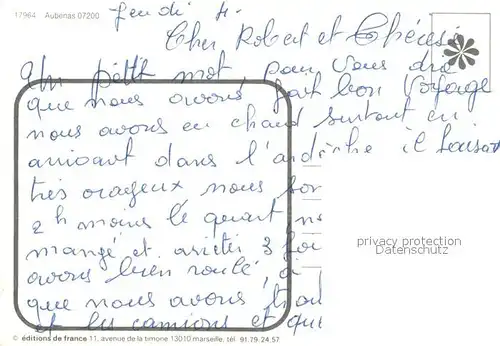 17964 Aubenas 07200
Jeudi 4.
Cher Robert et Thérèse
Un petit mot pour vous dire
que nous avons fait bon voyage
nous avons eu chaud surtout en
arrivant dans l'ardèche il faisait
très orageux nous
2 h moins le quart
mangé et arrêter 3
avons bien roulé,
que nous avons
et les camions et que
privacy protection
Datenschutz
© éditions de france 11, avenue de la timone 13010 marseille, tél 91.79.24.57